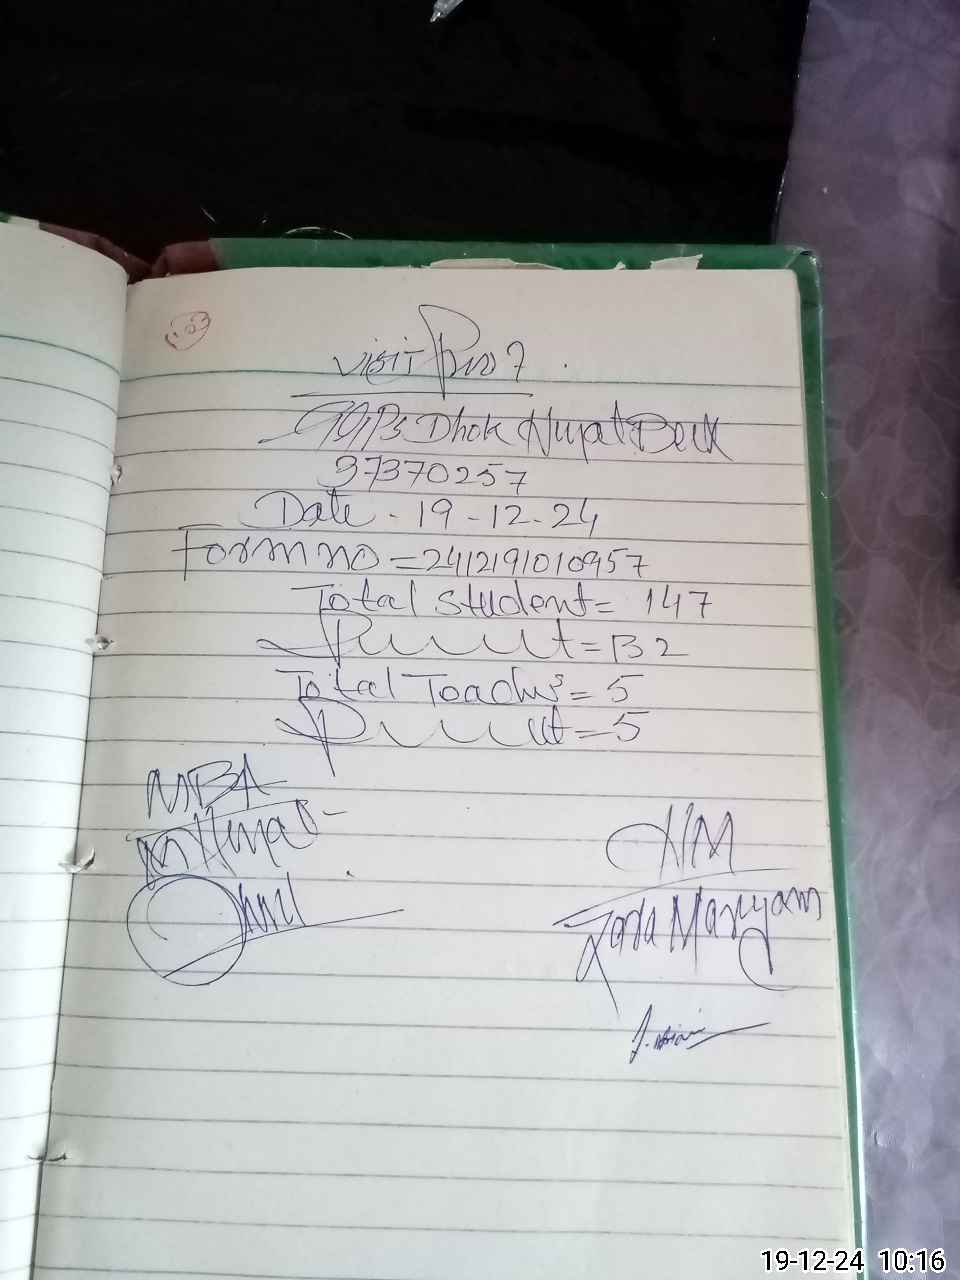 103
Visit
GGPS Dhok Hayat Beux
37370257
Date - 19-12-24
Form no = 2412191010957
Total Student = 147
Present = 132
Total Teachers = 5
Present = 5
MBA
HM
Zara Maryam
19-12-24 10:16